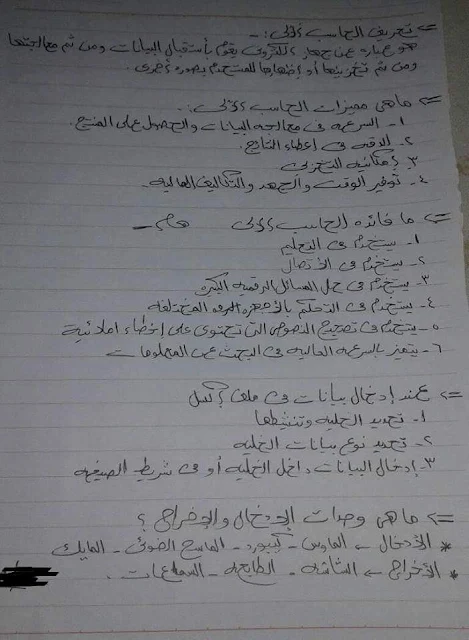 => تعريف الحاسب الآلي :-
هو عبارة عن جهاز الكتروني يقوم بأستقبال البيانات ومن ثم معالجتها
ومن ثم تخزينها أو إظهارها للمستخدم بصوره أخرى.
=> ما هي مميزات الحاسب الآلى :-
١- السرعه فى معالجه البيانات والحصول على المنتج.
٢- الدقه فى اعطاء النتائج.
٣- إمكانيه التخزين
٤- توفير الوقت والجهد والتكاليف الماليه.
=> ما فائده الحاسب الآلى هام -
١- يستخدم فى التعليم
٢- يستخدم فى الأتصال
٣- يستخدم فى حل المسائل الرقميه الكبيره
٤- يستخدم فى التحكم بالأجهزه المختلفه
٥- يستخدم فى تصحيح النصوص التى تحتوى على إخطاء املائية
٦- يتميز بالسرعه العاليه فى البحث عن المعلومات
=> عند إدخال بيانات فى ملف إكسل
١- تحديد الخليه وتنشيطها
٢- تحديد نوع بيانات الخليه
٣- إدخال البيانات داخل الخليه أو فى شريط الصيغه
=> ما هى وحدات الإدخال والإخراج ؟
* الأدخال ← الماوس - كيبورد - الماسح الضوئى - المايك
* الأخراج ← الشاشه - الطابعه - السماعات .